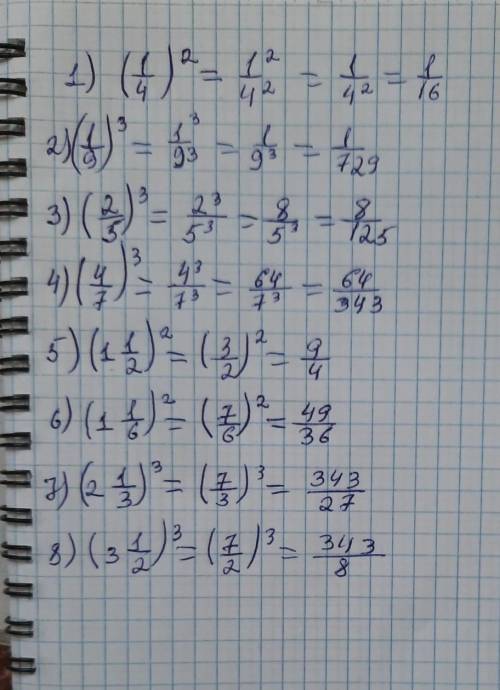 1) (1/4)² = 1²/4² = 1/4² = 1/16
2) (1/9)³ = 1³/9³ = 1/9³ = 1/729
3) (2/5)³ = 2³/5³ = 8/5³ = 8/125
4) (4/7)³ = 4³/7³ = 64/7³ = 64/343
5) (1 1/2)² = (3/2)² = 9/4
6) (1 1/6)² = (7/6)² = 49/36
7) (2 1/3)³ = (7/3)³ = 343/27
8) (3 1/2)³ = (7/2)³ = 343/8